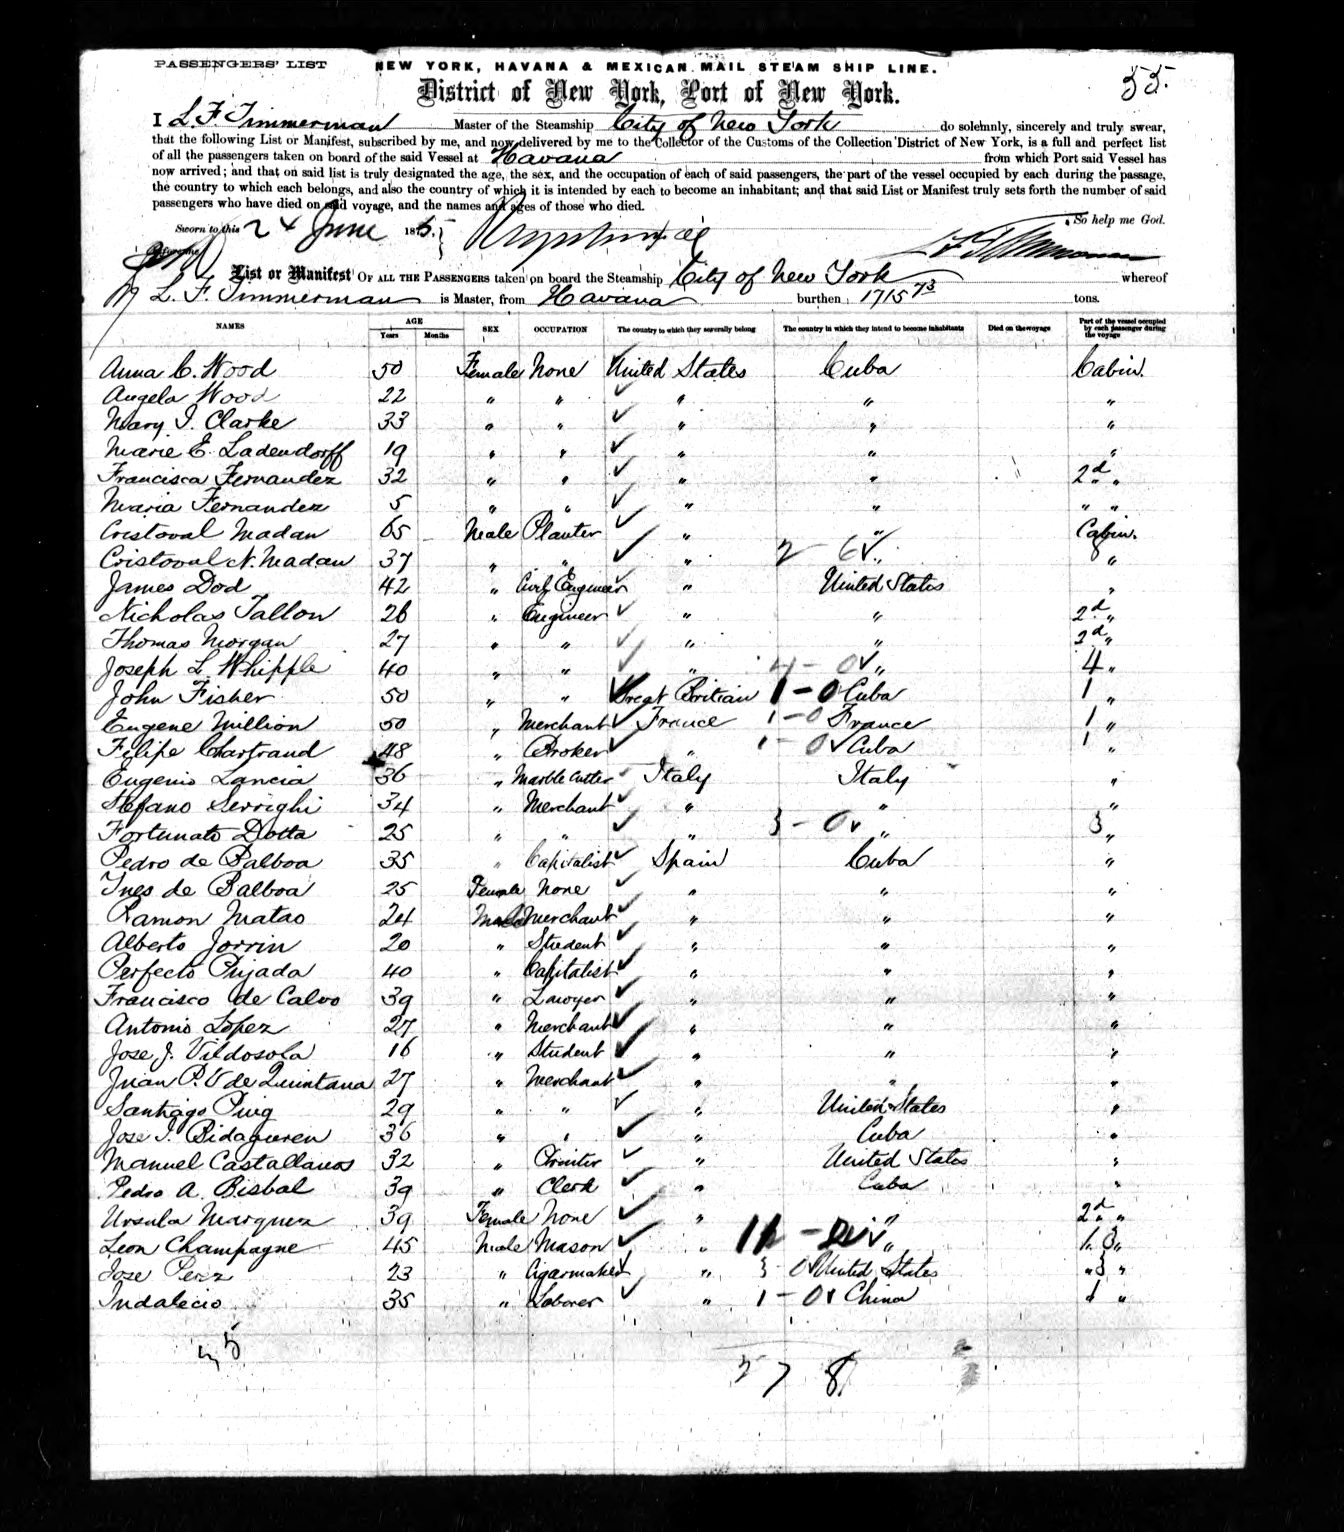 PASSENGERS' LIST
NEW YORK, HAVANA & MEXICAN MAIL STEAM SHIP LINE.
55.
District of New York, Port of New York.
I L. F. Timmerman Master of the Steamship City of New York do solemnly, sincerely and truly swear,
that the following List or Manifest, subscribed by me, and now delivered by me to the Collector of the Customs of the Collection District of New York, is a full and perfect list
of all the passengers taken on board of the said Vessel at Havana from which Port said Vessel has
now arrived; and that on said list is truly designated the age, the sex, and the occupation of each of said passengers, the part of the vessel occupied by each during the passage,
the country to which each belongs, and also the country of which it is intended by each to become an inhabitant; and that said List or Manifest truly sets forth the number of said
passengers who have died on said voyage, and the names and ages of those who died.
So help me God.
Sworn to this 24 June 1875.
before me
L F Timmerman
List or Manifest OF ALL THE PASSENGERS taken on board the Steamship City of New York whereof
L. F. Timmerman is Master, from Havana burthen 1715 73 tons.
NAMES AGE Years Months SEX OCCUPATION The country to which they severally belong The country in which they intend to become inhabitants Died on the voyage Part of the vessel occupied by each passenger during the voyage
Anna C. Wood 50 Female None United States Cuba Cabin.
Angela Wood 22 " " " " "
Mary I. Clarke 33 " " " " "
Marie E. Ladendorff 19 " " " " "
Francisca Fernandez 32 " " " " 2d "
Maria Fernandez 5 " " " " " "
Cristoval Madan 65 Male Planter " " Cabin.
Cristoval N. Madan 37 " " " 2 - 6 " 8 "
James Dod 42 " Civil Engineer " United States "
Nicholas Tallon 26 " Engineer " " 2d "
Thomas Morgan 27 " " " " 2d "
Joseph L. Whipple 40 " " " 4 - 0 " 4 "
John Fisher 50 " " Great Britian 1 - 0 Cuba 1 "
Eugene Million 50 " Merchant France 1 - 0 France 1 "
Filipe Chartrand 48 " Broker " 1 - 0 Cuba 1 "
Eugenio Lancia 36 " Marble Cutter Italy Italy "
Stefano Serrighi 34 " Merchant " " "
Fortunato Dotta 25 " " " 3 - 0 " 3 "
Pedro de Balboa 35 " Capitalist Spain Cuba "
Ines de Balboa 25 Female None " " "
Ramon Matas 24 Male Merchant " " "
Alberto Jorrin 20 " Student " " "
Perfecto Pujada 40 " Capitalist " " "
Francisco de Calvo 39 " Lawyer " " "
Antonio Lopez 27 " Merchant " " "
Jose J. Vildosola 16 " Student " " "
Juan P. V de Quintana 27 " Merchant " " "
Santiago Puig 29 " " " United States "
Jose I. Bidaguren 36 " " " Cuba "
Manuel Castallanos 32 " " United States "
Pedro A. Bisbal 39 " Clerk " Cuba "
Ursula Marquez 39 Female None " " 2d "
Leon Champagne 45 Male Mason " " "
Jose Perez 23 " Cigarmaker " 3 - 0 United States " 3 "
Indalecio 35 " Laborer " 1 - 0 China 1 "
27 8